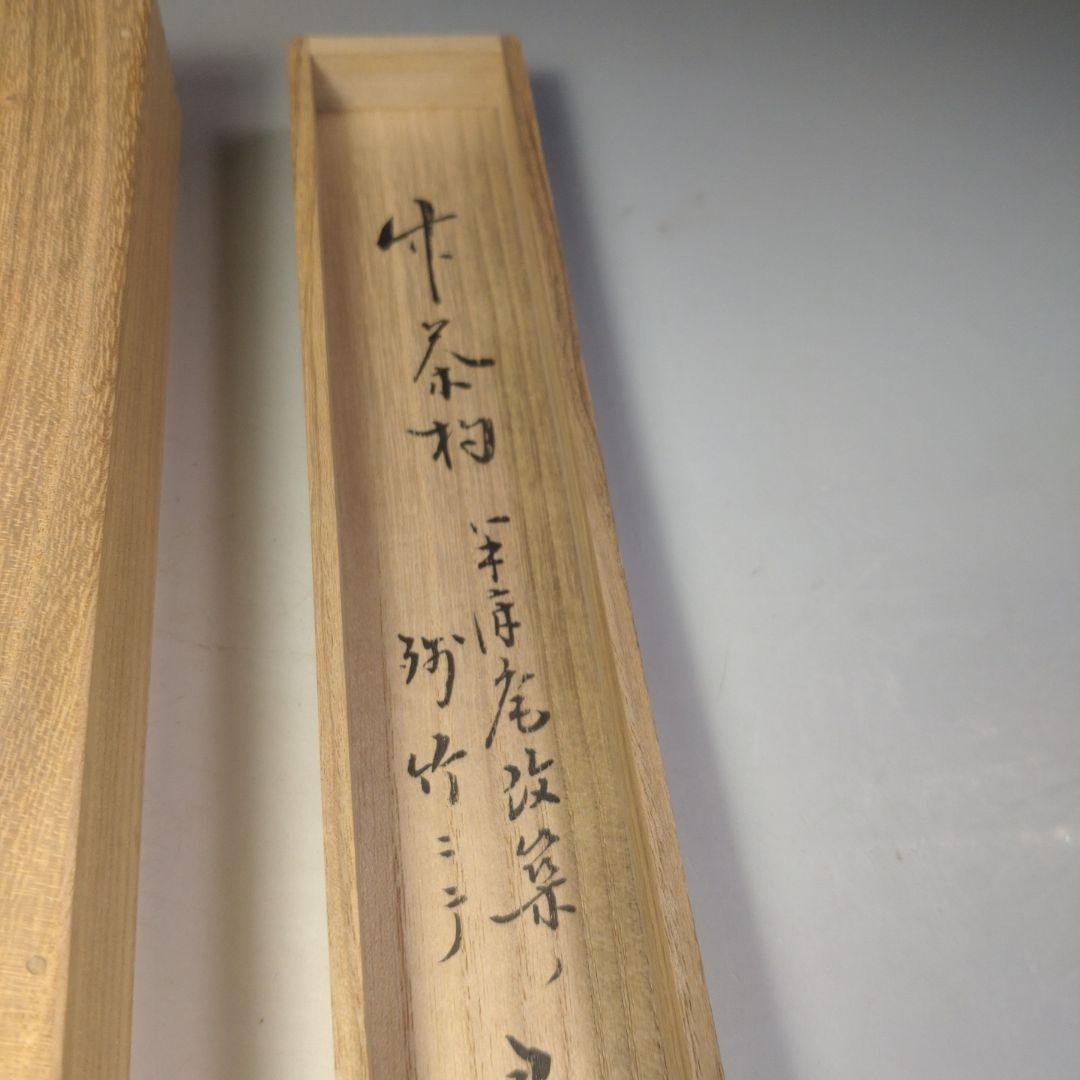 茶杓
半床庵改築ノ
残竹ニテ